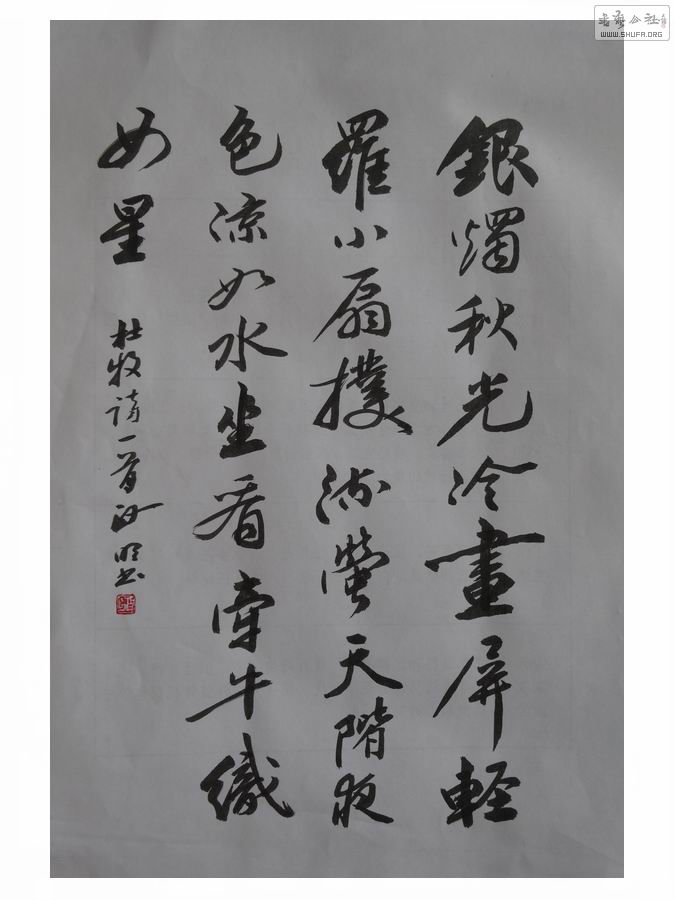 銀燭秋光冷畫屏輕
羅小扇撲流螢天階夜
色涼如水坐看牽牛織
女星
杜牧詩一首 明書
書藝公社
WWW.SHUFA.ORG